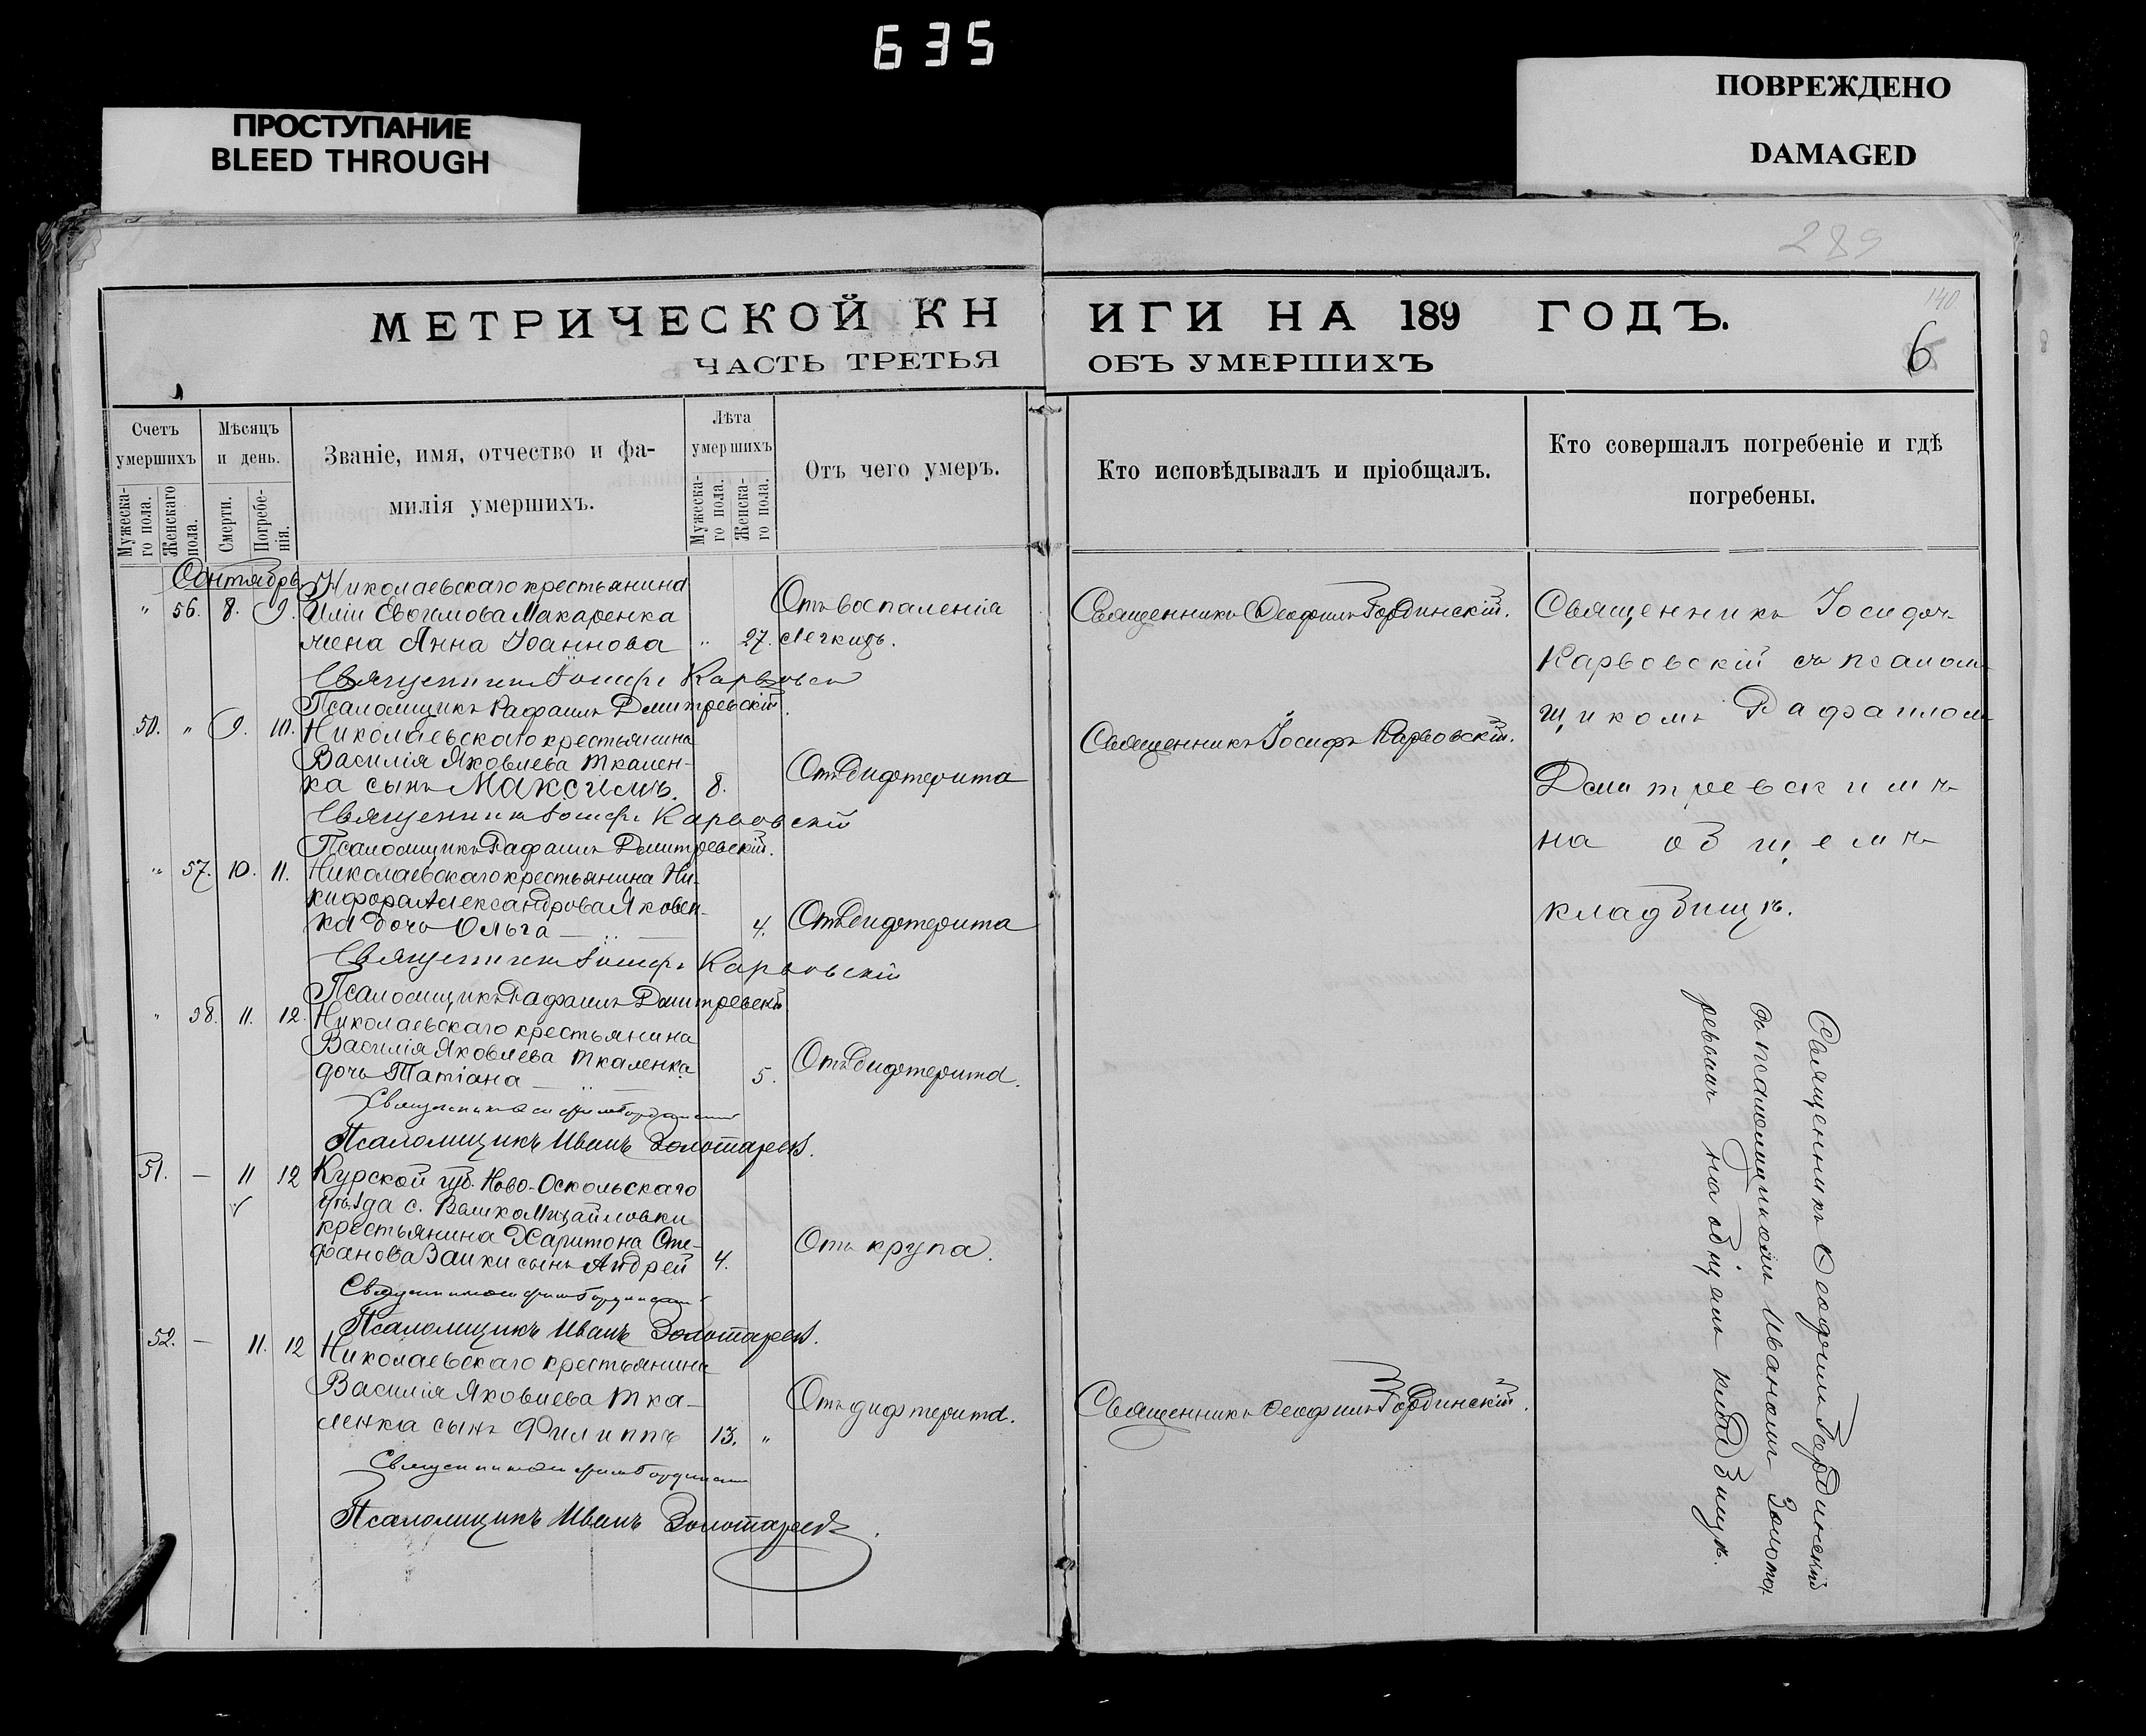 635
ПРОСТУПАНИЕ
BLEED THROUGH
ПОВРЕЖДЕНО
DAMAGED
289
140
МЕТРИЧЕСКОЙ КН
ЧАСТЬ ТРЕТЬЯ
ИГИ НА 189 ГОДЪ.
ОБЪ УМЕРШИХЪ
6
Счетъ умершихъ
Мужеска-го пола.
Женскаго пола.
Мѣсяцъ и день.
Смерти.
Погребе-нія.
Званіе, имя, отчество и фа-
милія умершихъ.
Лѣта умершихъ
Мужеска-го пола.
Женска-го пола.
Отъ чего умеръ.
Кто исповѣдывалъ и пріобщалъ.
Кто совершалъ погребеніе и гдѣ
погребены.
Сентябрь
Николаевскаго крестьянина
" 56. 8. 9. Иліи Евфимова Макаренка
жена Анна Іоаннова " 27.
Отъ воспаленія
легкихъ.
Священникъ Ѳеофилъ Гординскій.
Священникъ Іосифъ Карвовскій
Псаломщикъ Рафаилъ Дмитревскій.
50. " 9. 10. Николаевскаго крестьянина
Василія Яковлева Ткален-
ка сынъ Максимъ. 8.
Отъ дифтерита
Священникъ Іосифъ Карвовскій.
Священникъ Іосифъ Карвовскій
Псаломщикъ Рафаилъ Дмитревскій.
" 57. 10. 11. Николаевскаго крестьянина Ни-
кифора Александрова Яковен-
ка дочь Ольга — " — 4.
Отъ дифтерита
Священникъ Іосифъ Карвовскій
Псаломщикъ Рафаилъ Дмитревскій
" 58. 11. 12. Николаевскаго крестьянина
Василія Яковлева Ткаленка
дочь Татіана — " — 5.
Отъ дифтерита.
Священникъ Ѳеофилъ Гординскій
Псаломщикъ Иванъ Золотаревъ.
51. — 11 12 Курской губ. Ново-Оскольскаго
уѣзда с. Велико Михайловки
крестьянина Харитона Сте-
фанова Заики сынъ Андрей 4.
Отъ крупа.
Священникъ Ѳеофилъ Гординскій
Псаломщикъ Иванъ Золотаревъ.
52. — 11. 12 Николаевскаго крестьянина
Василія Яковлева Тка-
ленка сынъ Филиппъ 13. "
Отъ дифтерита.
Священникъ Ѳеофилъ Гординскій.
Священникъ Ѳеофилъ Гординскій
Псаломщикъ Иванъ Золотаревъ.
Священникъ Іосифъ
Карвовскій съ псалом-
щикомъ Рафаиломъ
Дмитревскимъ
на общемъ
кладбищѣ.
Священникъ Ѳеофилъ Гординскій
съ псаломщикомъ Иваномъ Золота-
ревымъ на общемъ кладбищѣ.